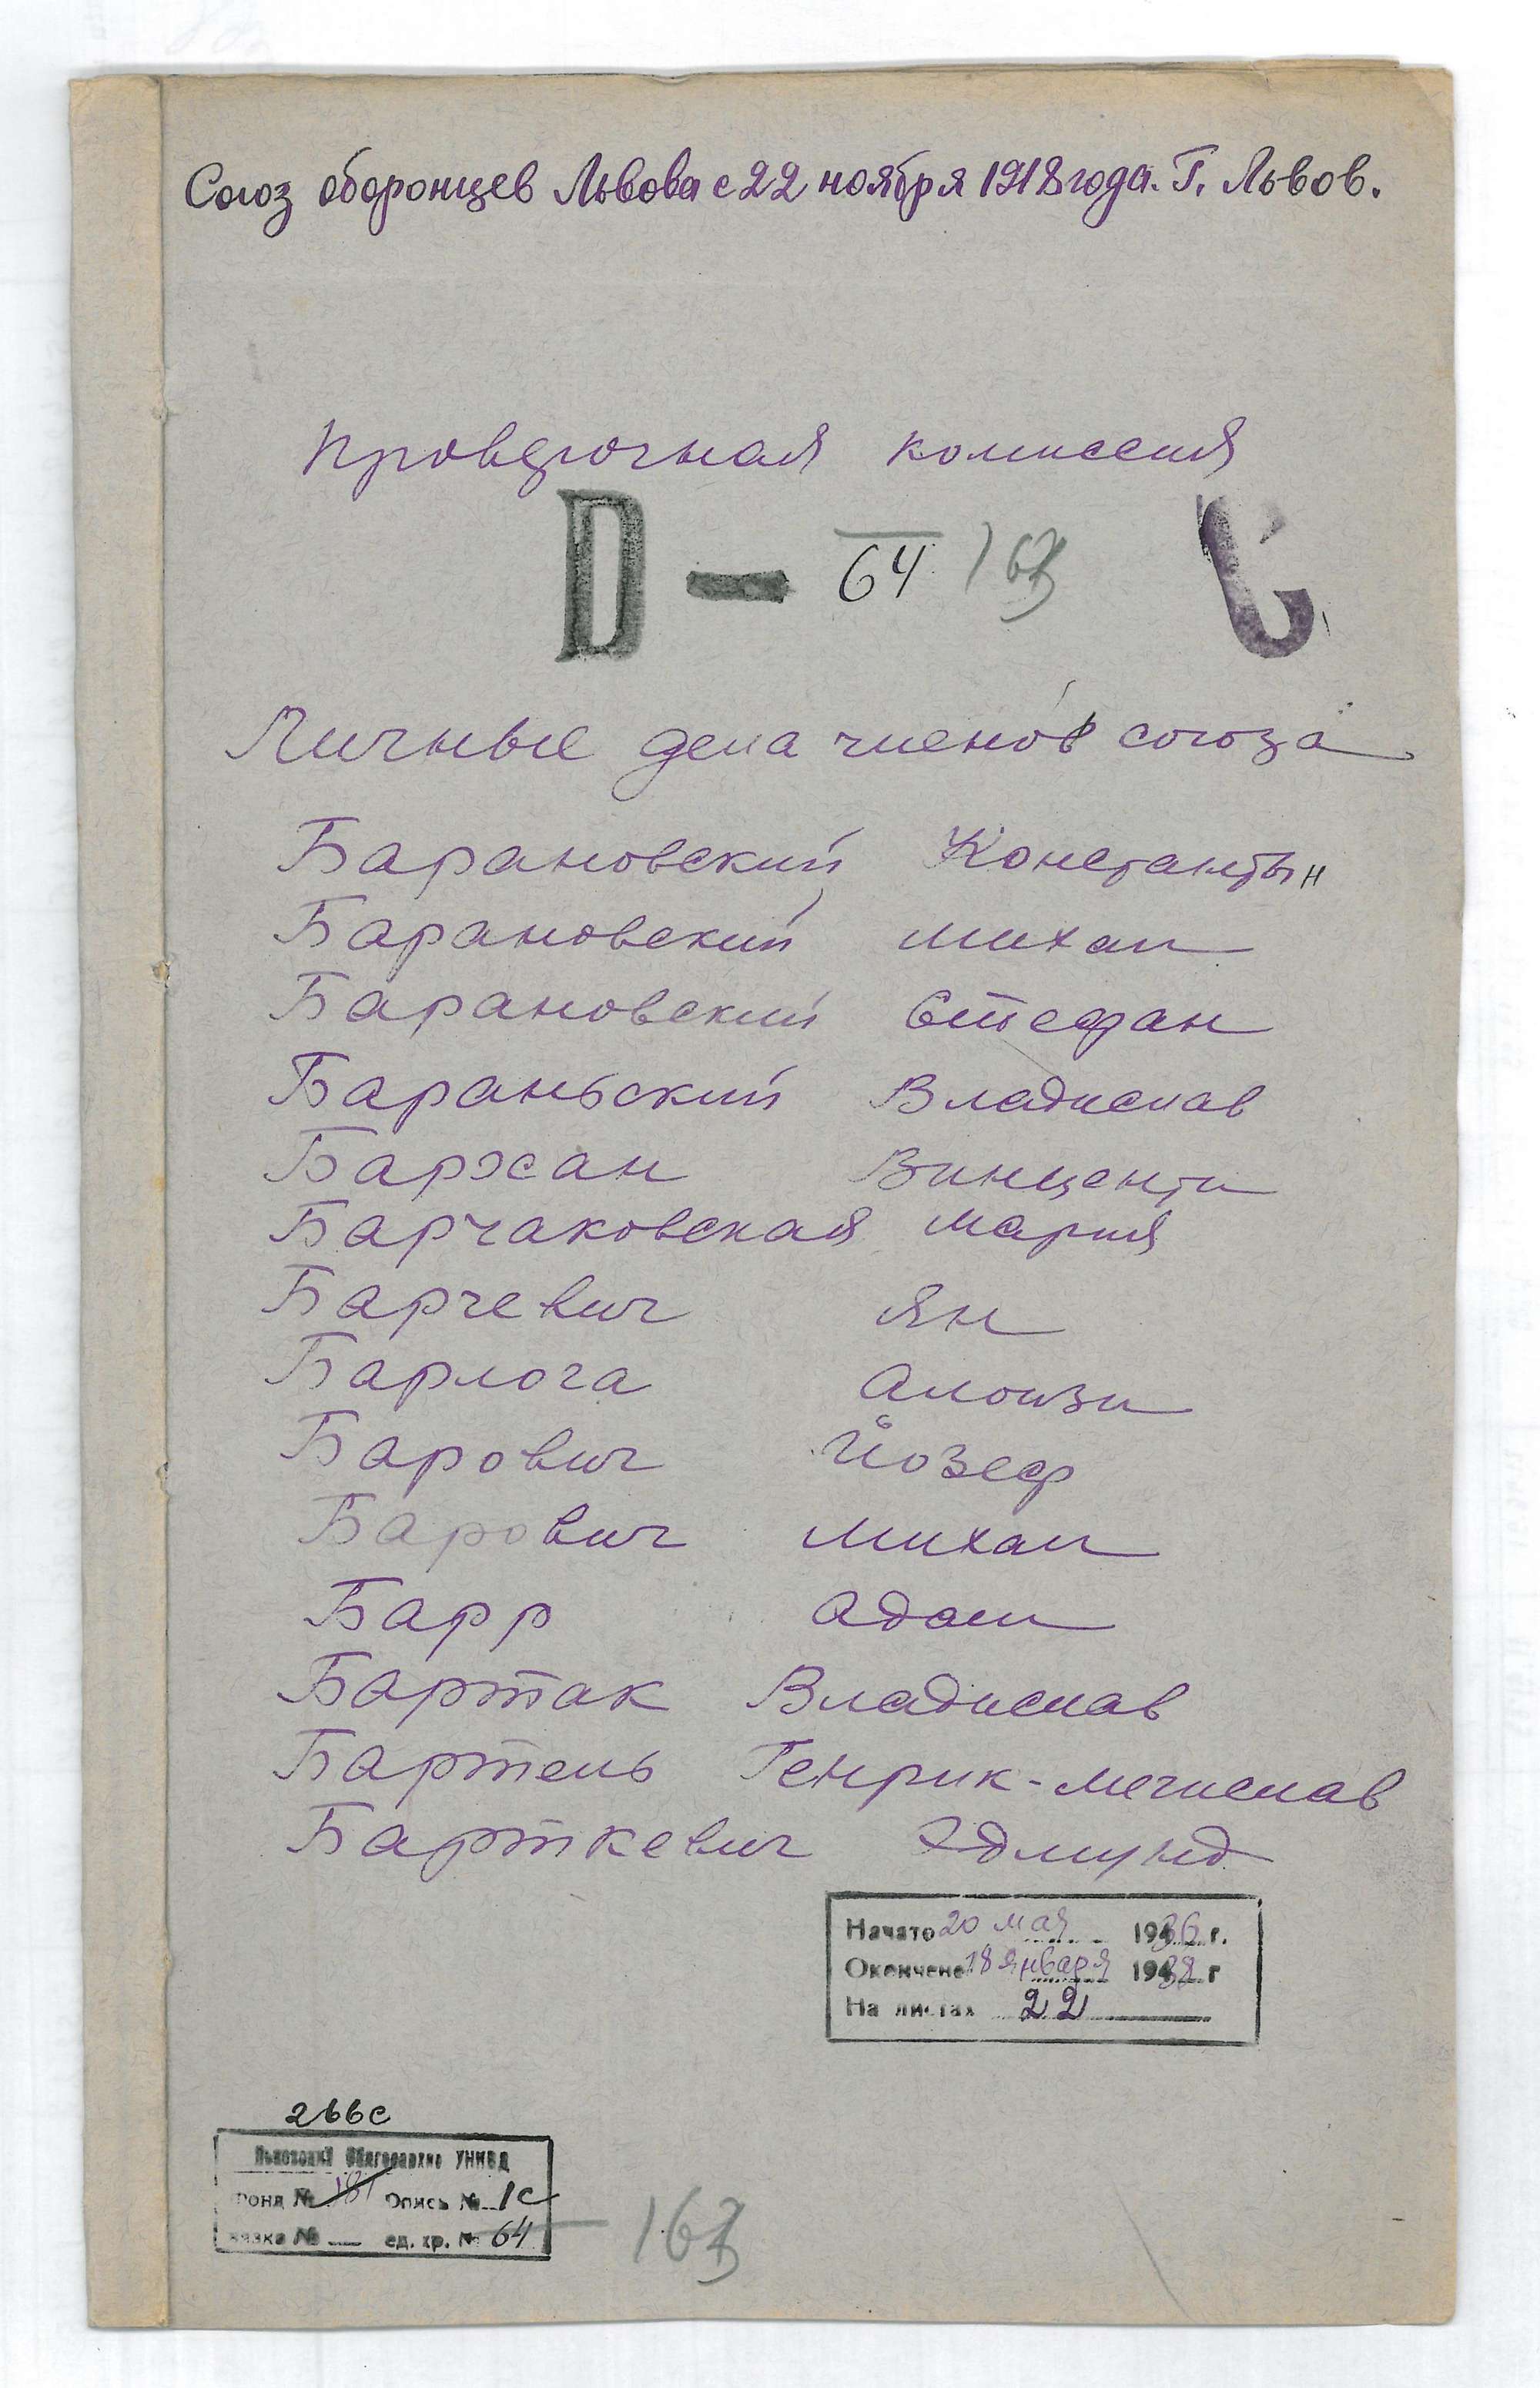 Союз оборонцев Львова с 22 ноября 1918 года. Г. Львов.
Проверочная комиссия
D — 64 163
Личные дела членов союза
Барановский Константын
Барановский Михал
Барановский Стефан
Бараньский Владислав
Баржан Винценти
Барчаковская Мария
Барчевич Ян
Барлога Алоизи
Барович Йозеф
Барович Михал
Барр Адам
Бартак Владислав
Бартель Генрик-Мечислав
Барткевич Эдмунд
Начато 20 мая 1936 г.
Окончено 18 января 1938 г
На листах 22
266с
Львовский Облгосархив УНКВД
Фонд № 181 Опись № 1с
Связка № — ед. хр. № 64
163